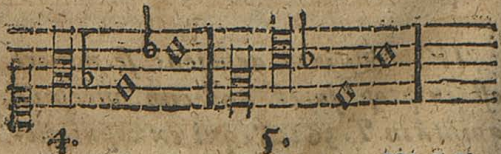 4. 5.